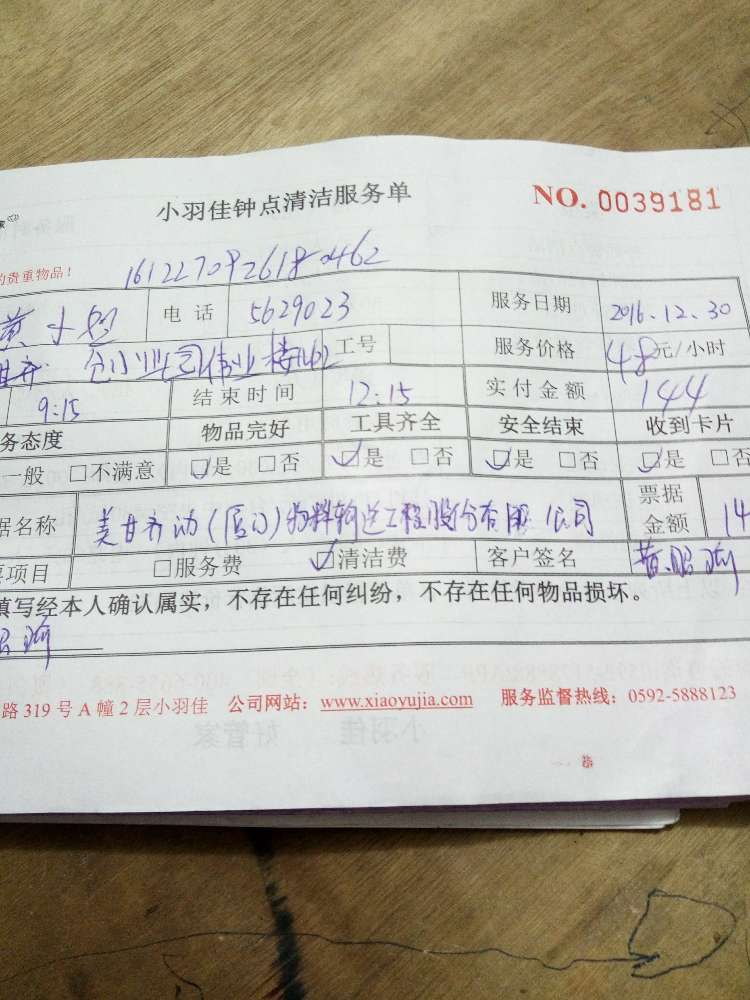 小羽佳钟点清洁服务单 NO. 0039181
的贵重物品!
电话 5629023 服务日期 2016.12.30
工号 服务价格 48元/小时
9:15 结束时间 12:15 实付金额 144
务态度 物品完好 工具齐全 安全结束 收到卡片
一般 □不满意 ☑是 □否 ☑是 □否 ☑是 □否 ☑是 □否
据名称 (厦门)物料输送工程股份有限公司 票据金额 14
票项目 □服务费 ☑清洁费 客户签名
填写经本人确认属实，不存在任何纠纷，不存在任何物品损坏。
路 319 号 A 幢 2 层小羽佳 公司网站：www.xiaoyujia.com 服务监督热线：0592-5888123